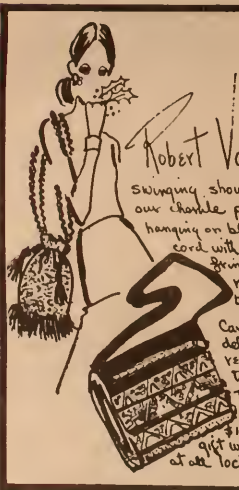 Robert V
swinging shou
our chenile p
hanging on bl
cord with
frin
Car
de
re
T
$1
gift w
at all loc